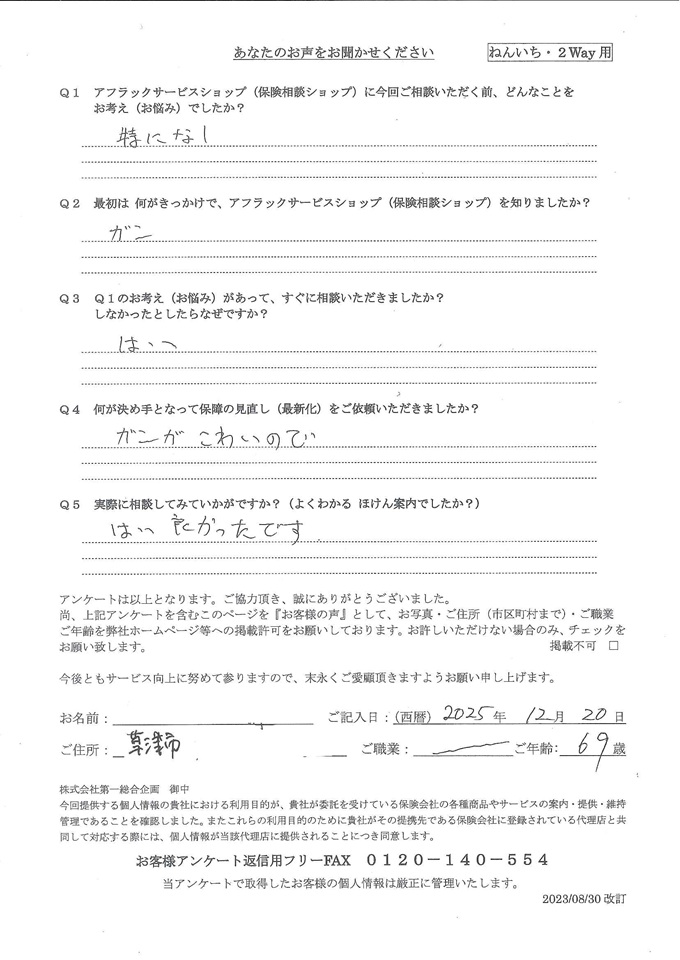 あなたのお声をお聞かせください
ねんいち・2Way用
Q1 アフラックサービスショップ（保険相談ショップ）に今回ご相談いただく前、どんなことを
お考え（お悩み）でしたか？
特になし
Q2 最初は 何がきっかけで、アフラックサービスショップ（保険相談ショップ）を知りましたか？
ガン
Q3 Q1のお考え（お悩み）があって、すぐに相談いただきましたか？
しなかったとしたらなぜですか？
はい
Q4 何が決め手となって保障の見直し（最新化）をご依頼いただきましたか？
ガンがこわいので
Q5 実際に相談してみていかがですか？（よくわかる ほけん案内でしたか？）
はい 良かったです
アンケートは以上となります。ご協力頂き、誠にありがとうございました。
尚、上記アンケートを含むこのページを『お客様の声』として、お写真・ご住所（市区町村まで）・ご職業
ご年齢を弊社ホームページ等への掲載許可をお願いしております。お許しいただけない場合のみ、チェックを
お願い致します。 掲載不可 □
今後ともサービス向上に努めて参りますので、末永くご愛顧頂きますようお願い申し上げます。
お名前： ご記入日：（西暦）2025年 12月 20日
ご住所： 草津市 ご職業： ご年齢： 69歳
株式会社第一総合企画 御中
今回提供する個人情報の貴社における利用目的が、貴社が委託を受けている保険会社の各種商品やサービスの案内・提供・維持
管理であることを確認しました。またこれらの利用目的のために貴社がその提携先である保険会社に登録されている代理店と共
同して対応する際には、個人情報が当該代理店に提供されることにつき同意します。
お客様アンケート返信用フリーFAX 0120－140－554
当アンケートで取得したお客様の個人情報は厳正に管理いたします。
2023/08/30 改訂